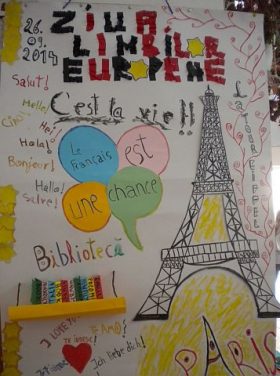 26.
09.
2014
ZIUA
LIMBILOR
EUROPENE
C'est la vie!!
Salut!
Hello!
Ciao!
Hei!
Hola!
Bonjour!
Hallo!
Salve!
Le
Français
est
une
chance
LA TOUR EIFFEL
Bibliotecă
I LOVE YOU
TE AMO!
TE IUBESC!
Je t'aime!
Ich liebe dich!
PARIS